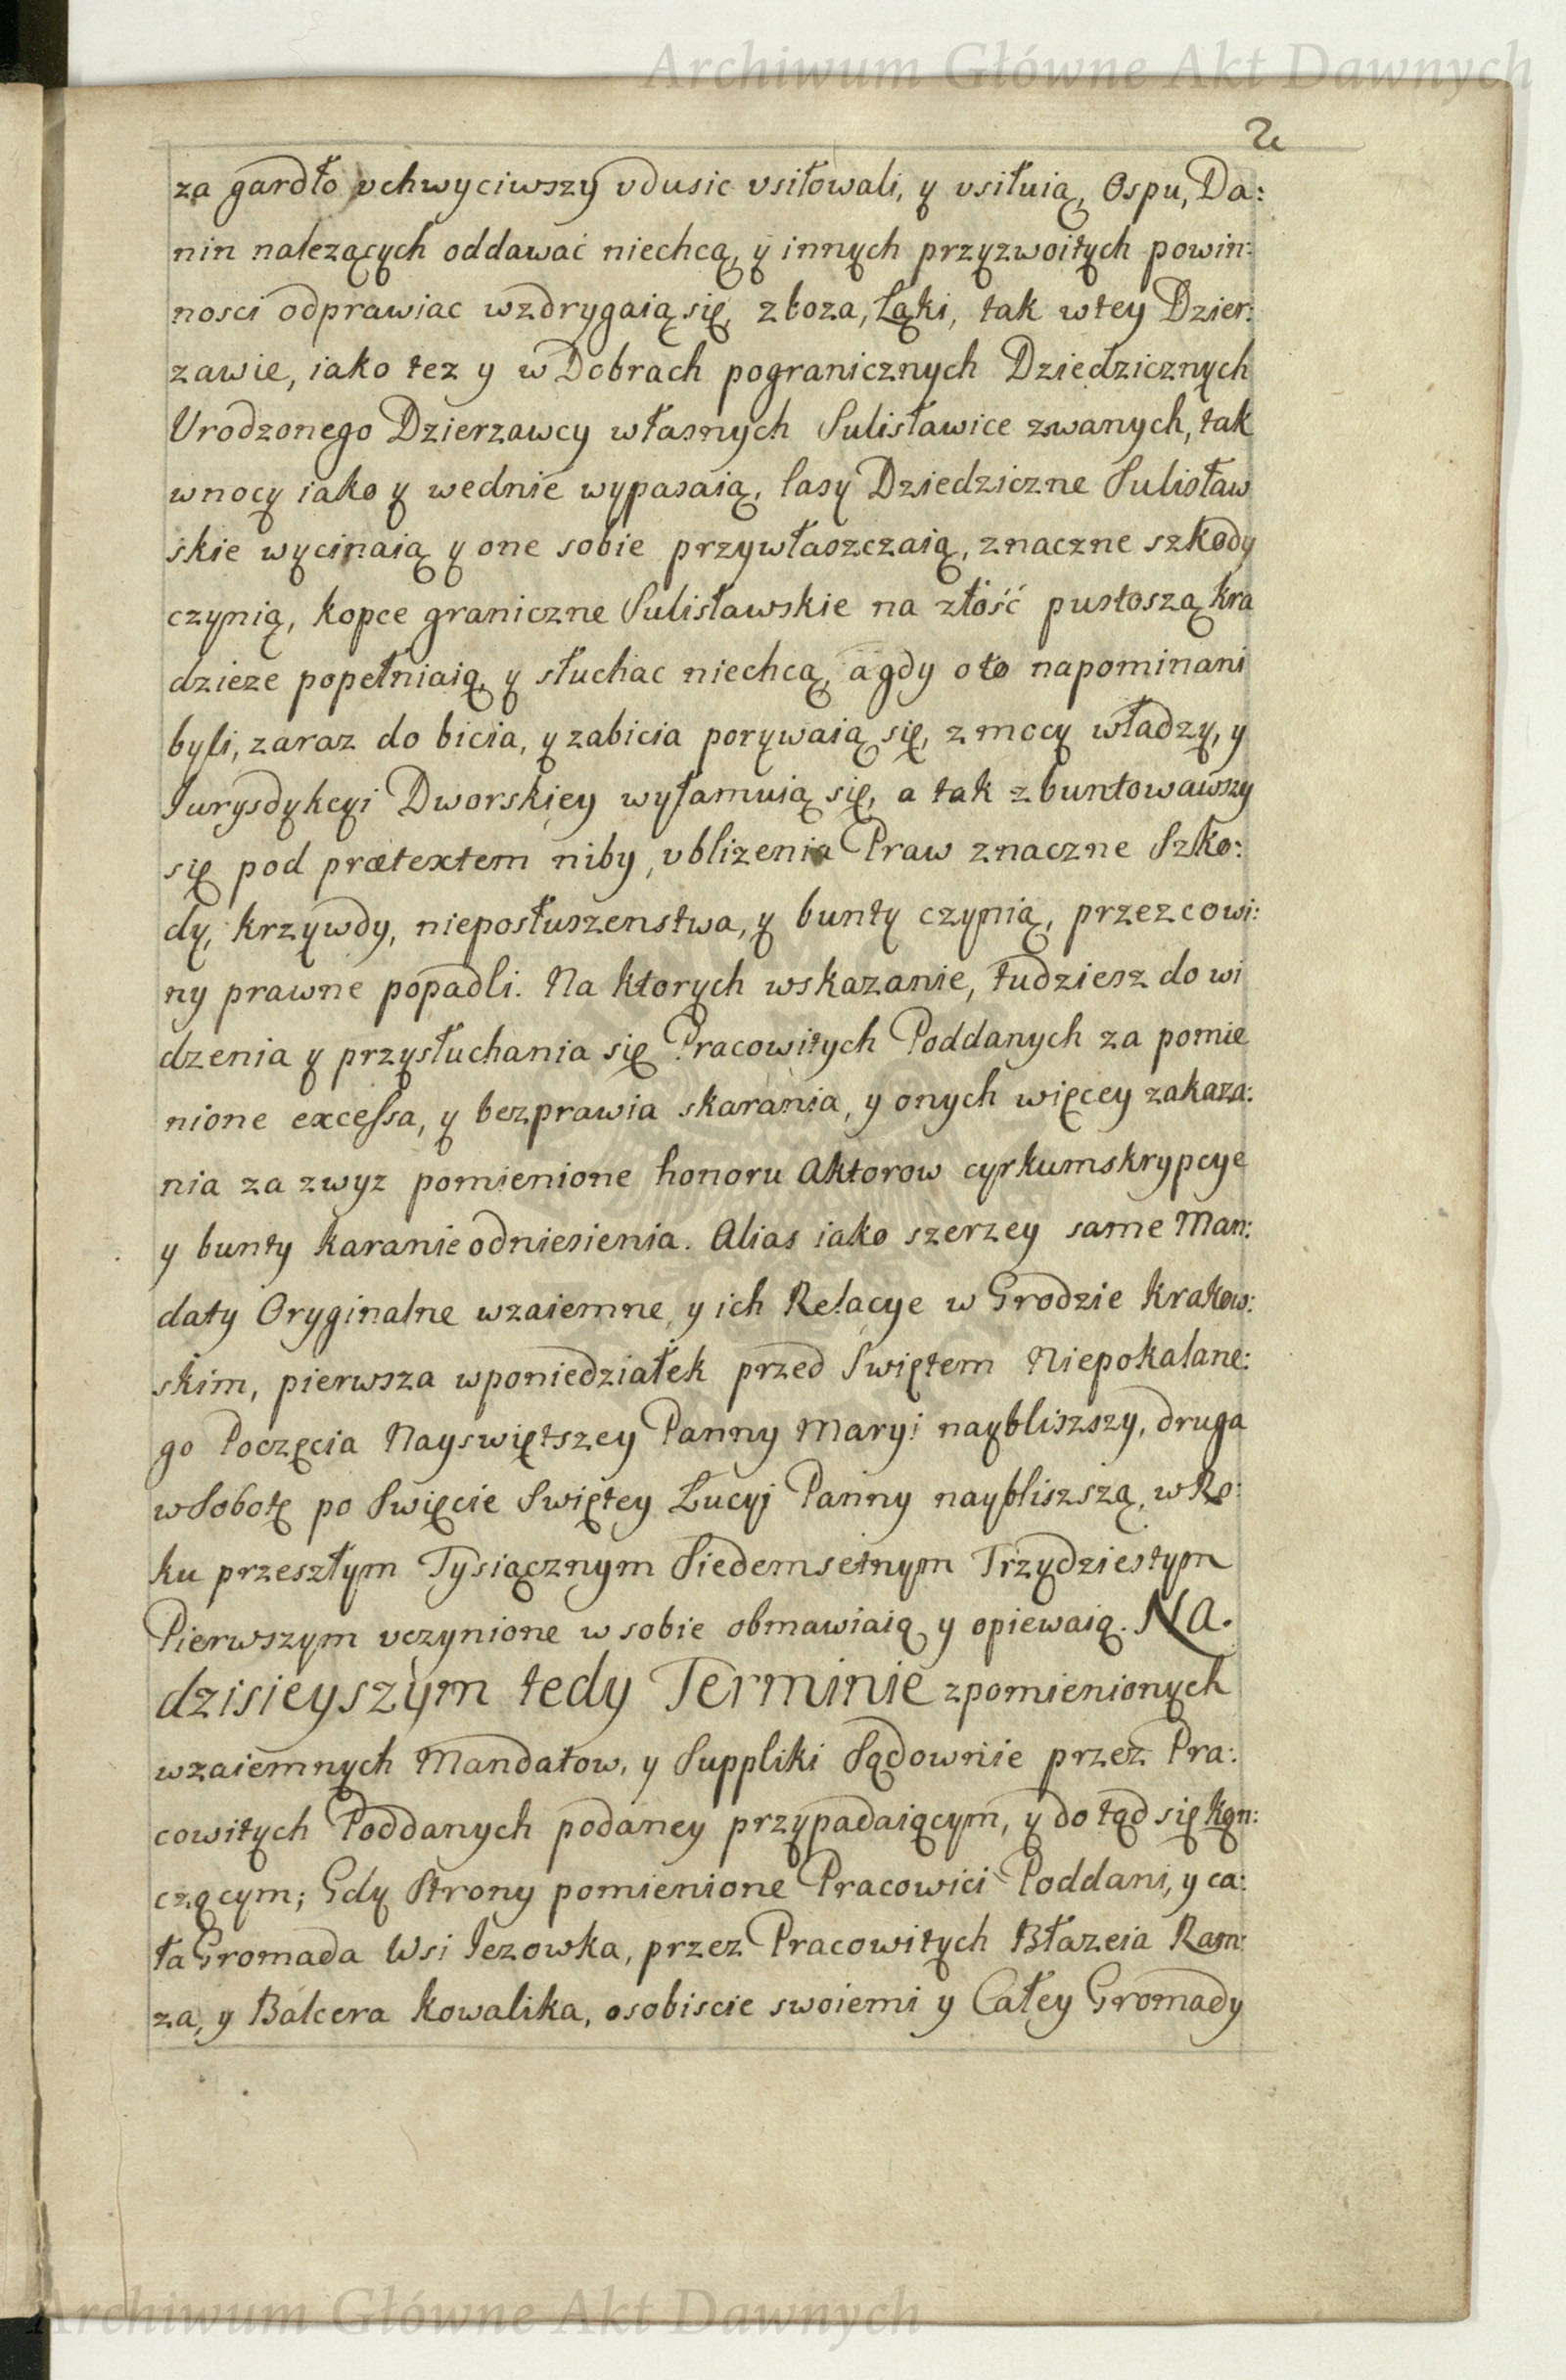 Archiwum Główne Akt Dawnych
2
za gardło vchwyciwszy vdusic vsiłowali, y vsiłuią, Ospu, Da:
nin nalezących oddawać niechcą, y innych przyzwoitych powin:
nosci odprawiac wzdrygaią się, zboza, Łąki, tak wtey Dzier:
zawie, iako tez y w Dobrach pogranicznych Dziedzicznych
Urodzonego Dzierzawcy własnych Sulisławice zwanych, tak
wnocy iako y wednie wypasaią, lasy Dziedziczne Sulisław
skie wycinaią y one sobie przywłaszczaią, znaczne szkody
czynią, kopce graniczne Sulisławskie na złość pustoszą kra
dzieze popełniaią, y słuchac niechcą, a gdy oto napominani
byli, zaraz do bicia, y zabicia porywaią się, z mocy władzy, y
Jurysdykcyi Dworskiey wyłamuią się, a tak zbuntowawszy
się pod prætextem niby, vblizenia Praw znaczne Szko:
dy, krzywdy, nieposłuszenstwa, y bunty czynią, przez co wi:
ny prawne popadli. Na ktorych wskazanie, tudziesz do wi
dzenia y przysłuchania się Pracowitych Poddanych za pomie
nione excessa, y bezprawia skarania, y onych więcey zakaza:
nia za zwyz pomienione honoru Aktorow cyrkumskrypcye
y bunty karanie odniesienia. Alias iako szerzey same Man:
daty Oryginalne wzaiemne, y ich Relacye w Grodzie Krakow:
skim, pierwsza wponiedziałek przed Swiętem Niepokalane:
go Poczęcia Nayswiętszey Panny Maryi naybliszszy, druga
wSobotę po Swięcie Swiętey Łucyi Panny naybliszszą, wRo:
ku przeszłym Tysiącznym Siedemsetnym Trzydziestym
Pierwszym vczynione w sobie obmawiaią y opiewaią. NA.
dzisieyszym tedy Terminie zpomienionych
wzaiemnych Mandatow, y Suppliki Sądownie przez Pra:
cowitych Poddanych podaney przypadaiącym, y do tąd się kon:
czącym; Gdy Strony pomienione Pracowici Poddani, y ca:
ła Gromada Wsi Jezowka, przez Pracowitych Błazeia Ram:
za, y Balcera Kowalika, osobiscie swoiemi y Całey Gromady
Archiwum Główne Akt Dawnych